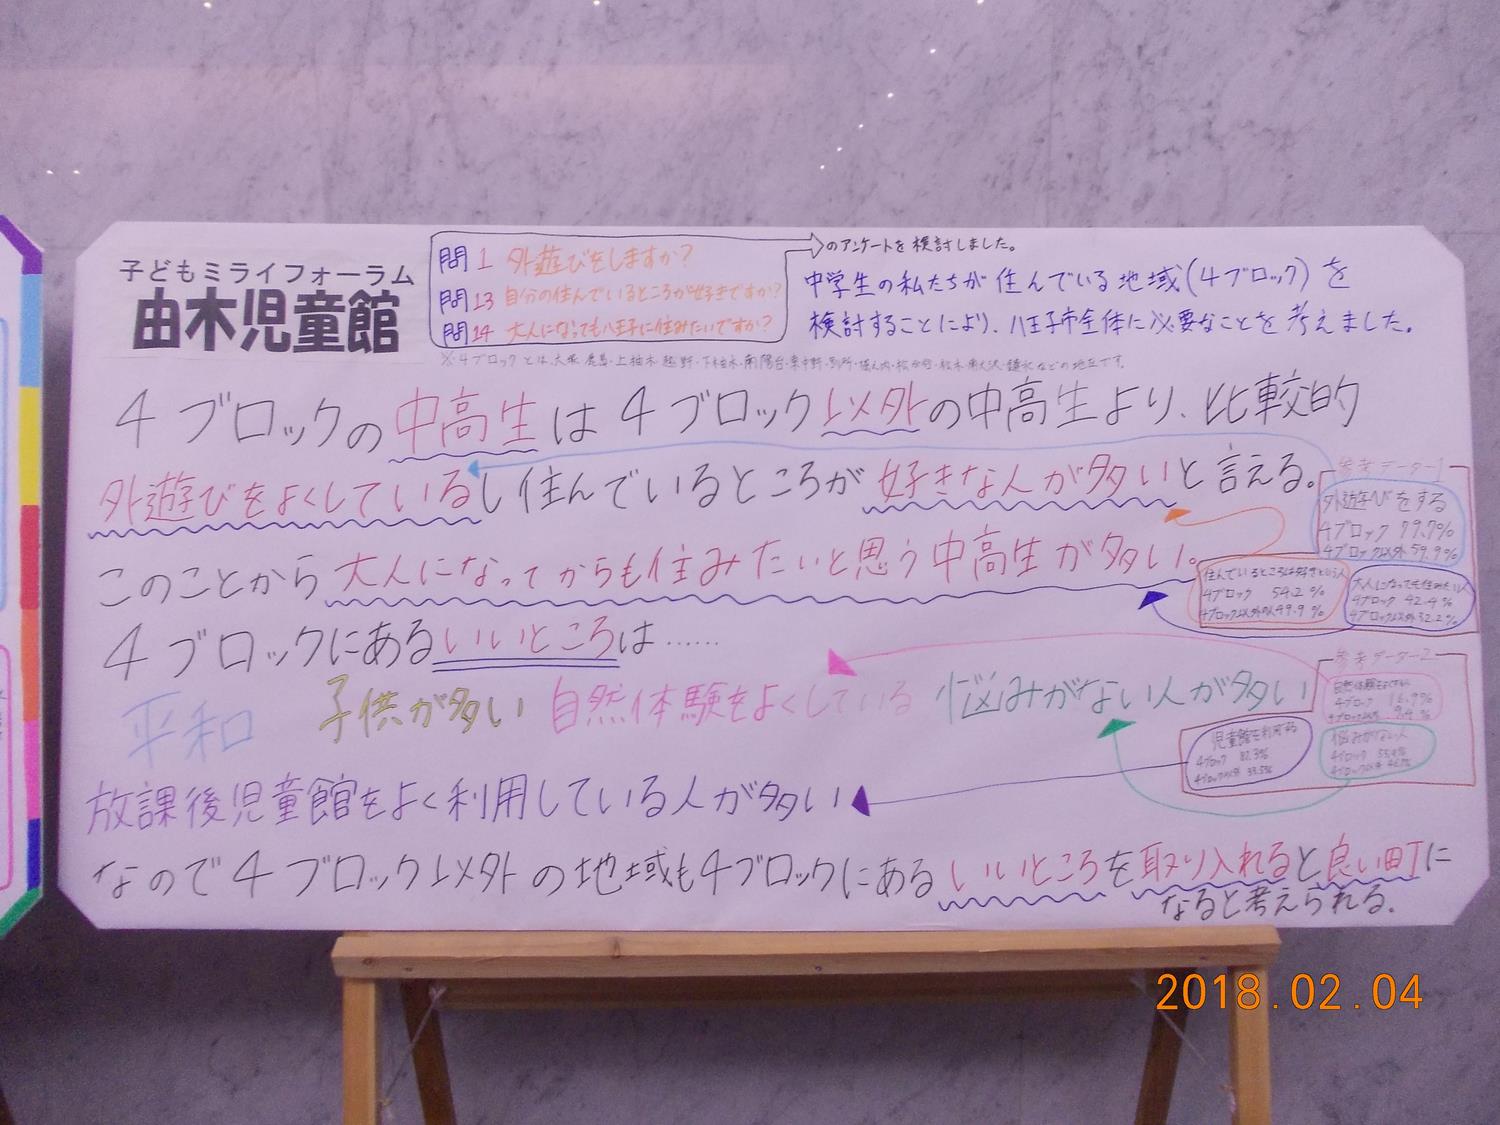 子どもミライフォーラム
由木児童館
問1 外遊びをしますか?
問13 自分の住んでいるところが好きですか?
問14 大人になっても八王子に住みたいですか?
のアンケートを検討しました。
中学生の私たちが住んでいる地域(4ブロック)を
検討することにより、八王子市全体に必要なことを考えました。
※4ブロックとは、大塚・鹿島・上柚木・越野・下柚木・南陽台・東中野・別所・堀之内・松が谷・松木・南大沢・鑓水などの地区です。
4ブロックの中高生は4ブロック以外の中高生より、比較的
外遊びをよくしているし住んでいるところが好きな人が多いと言える。
このことから大人になってからも住みたいと思う中高生が多い。
参考データー1
外遊びをする
4ブロック 79.7%
4ブロック以外 59.9%
住んでいるところは好きという人
4ブロック 54.2%
4ブロック以外の人49.9%
大人になっても住みたい人
4ブロック 42.4%
4ブロック以外32.2%
4ブロックにあるいいところは……
平和 子供が多い 自然体験をよくしている 悩みがない人が多い
放課後児童館をよく利用している人が多い
参考データー2
自然体験をよくする人
4ブロック 16.9%
4ブロック以外 9.4%
児童館を利用する
4ブロック
4ブロック以外 33.5%
悩みがない人
4ブロック
4ブロック以外
なので4ブロック以外の地域も4ブロックにあるいいところを取り入れると良い町に
なると考えられる.
2018.02.04